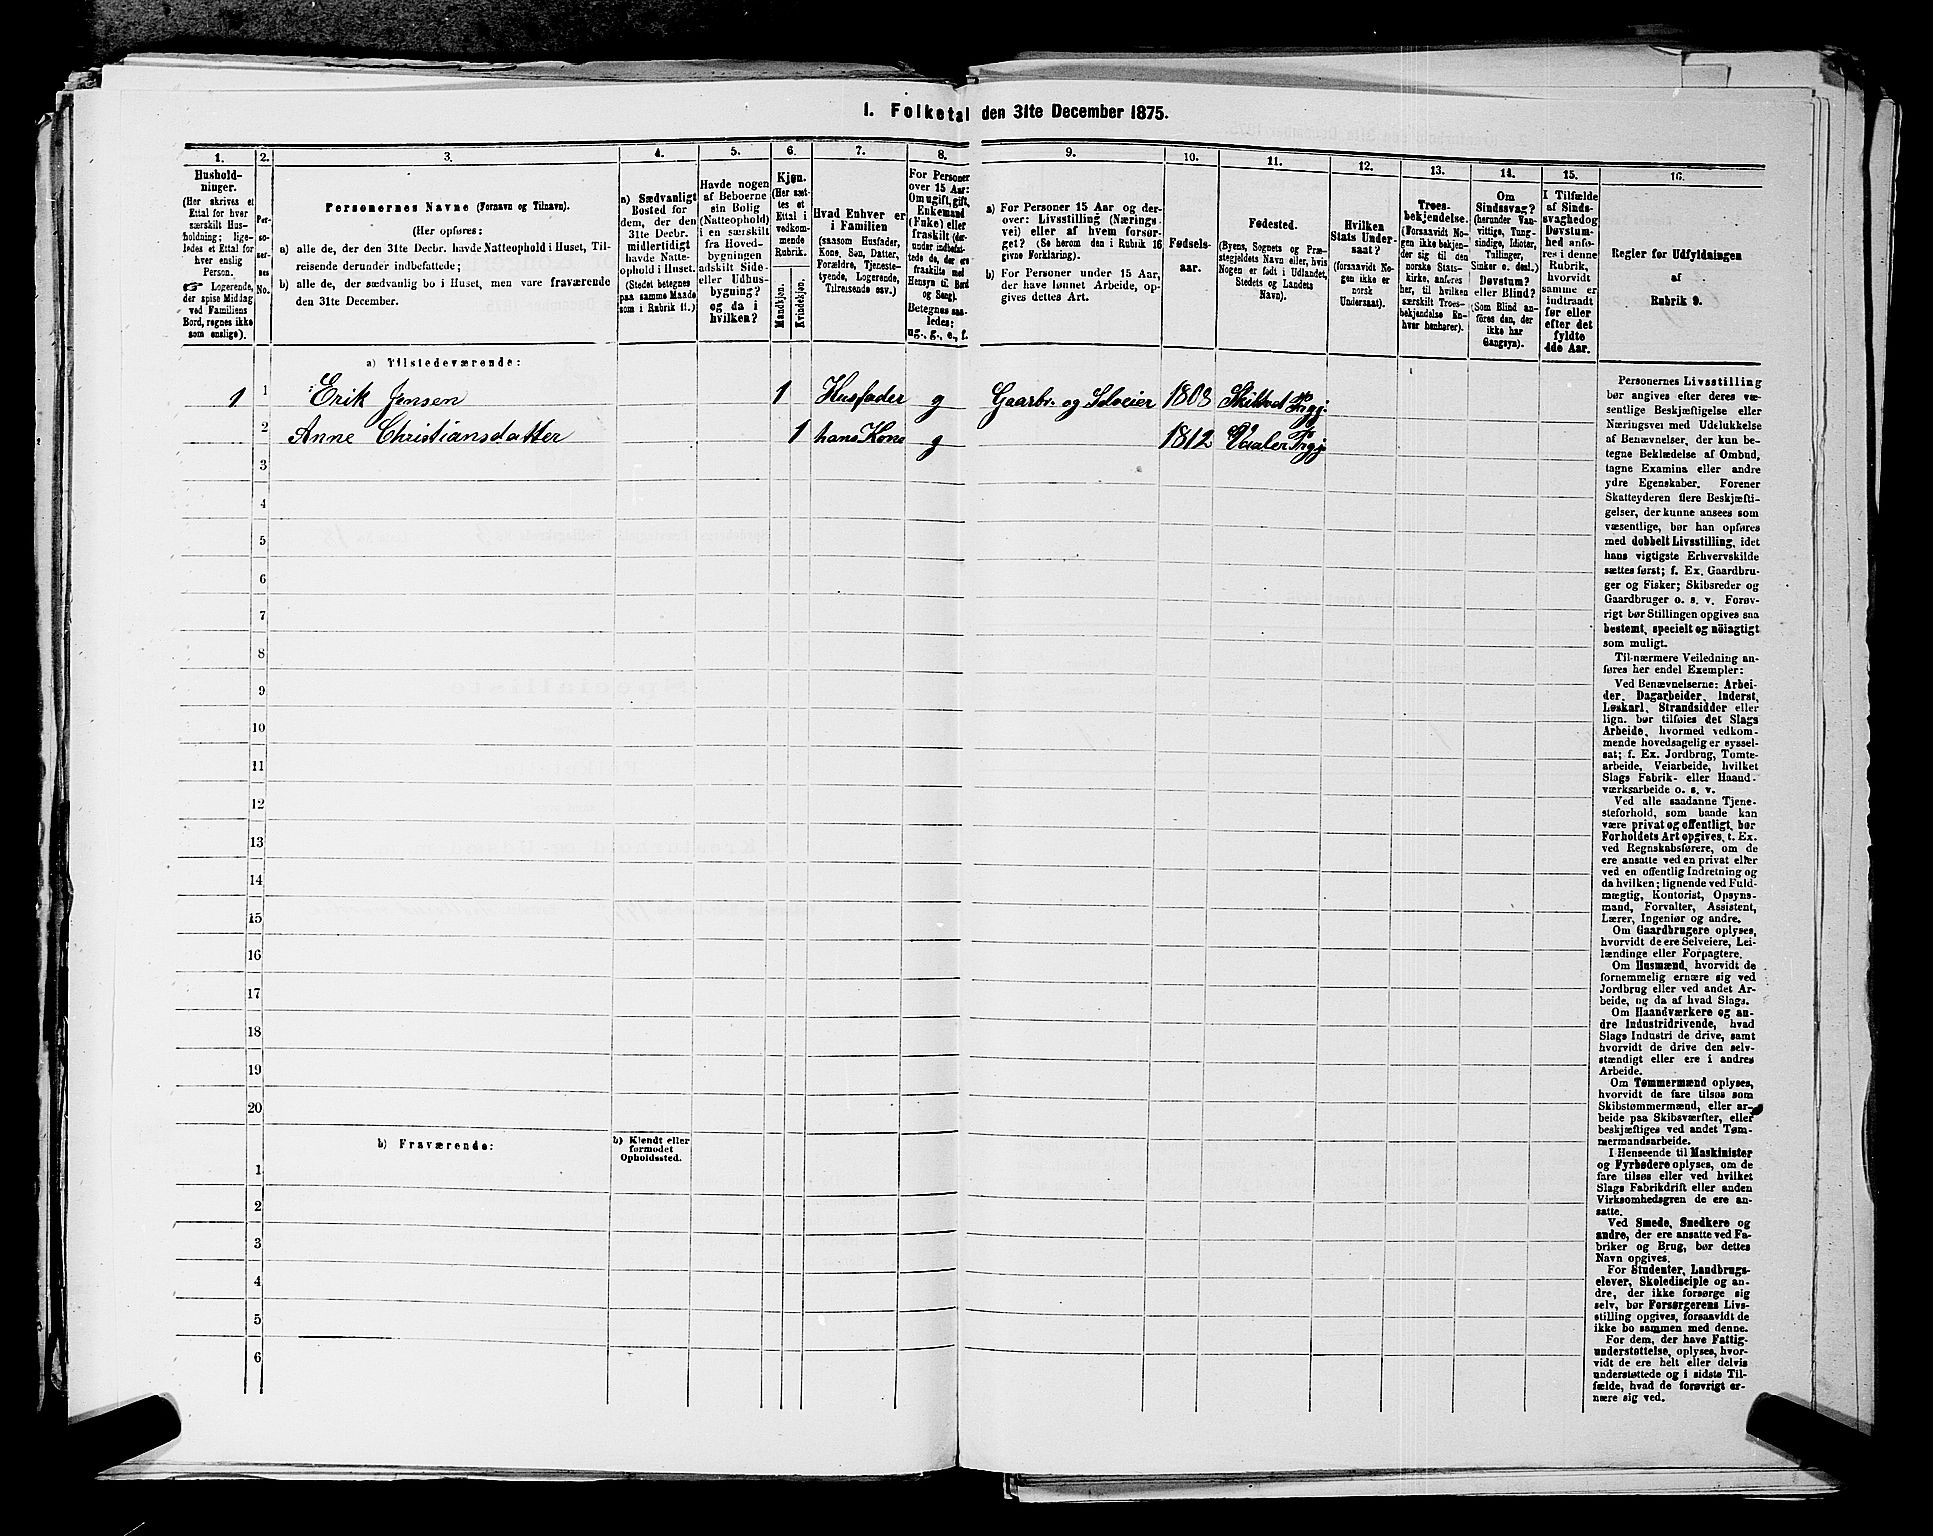 1. Folketal den 31te December 1875.
1.
2.
3.
4.
5.
6.
7.
8.
9.
10.
11.
12.
13.
14.
15.
16.
Hushold-
ninger.
(Her skrives et
Ettal for hver
særskilt Hus-
holdning; lige-
ledes et Ettal for
hver enslig
Person.
☞ Logerende,
der spise Middag
ved Familiens
Bord, regnes ikke
som enslige).
Per-
so-
ner-
nes
No.
Personernes Navne (Fornavn og Tilnavn).
(Her opføres:
a) alle de, der den 31te Decbr. havde Natteophold i Huset, Til-
reisende derunder indbefattede;
b) alle de, der sædvanlig bo i Huset, men vare fraværende
den 31te December.
a) Sædvanligt
Bosted for
dem, der den
31te Decbr.
midlertidigt
havde Natte-
ophold i Huset.
(Stedet betegnes
paa samme Maade
som i Rubrik 11.)
Havde nogen
af Beboerne
sin Bolig
(Natteophold)
i en særskilt
fra Hoved-
bygningen
adskilt Side-
eller Udhus-
bygning?
og da i
hvilken?
Kjøn.
(Her sæt-
tes et
Ettal i
vedkom-
mende
Rubrik.
Mandkjøn.
Kvindekjøn.
Hvad Enhver er
i Familien
(saasom Husfader,
Kone, Søn, Datter,
Forældre, Tjeneste-
tyende, Logerende,
Tilreisende osv.)
For Personer
over 15 Aar:
Om ugift, gift,
Enkemand
(Enke) eller
fraskilt (der-
under indbefat-
tede de, der ere
fraskilte med
Hensyn til Bord
og Seng).
Betegnes saa-
ledes:
ug., g., e., f.
a) For Personer 15 Aar og der-
over: Livsstilling (Nærings-
vei) eller af hvem forsør-
get? (Se herom den i Rubrik 16
givne Forklaring).
b) For Personer under 15 Aar,
der have lønnet Arbeide, op-
gives dettes Art.
Fødsels-
aar.
Fødested.
(Byens, Sognets og Præ-
stegjeldets Navn eller, hvis
Nogen er født i Udlandet,
Stedets og Landets
Navn).
Hvilken
Stats Under-
saat?
(forsaavidt No-
gen ikke er
norsk
Undersaat).
Troes-
bekjendelse.
(Forsaavidt No-
gen ikke bekjen-
der sig til den
norske Stats-
kirke, anføres
her, til hvilken
særskilt Troes-
bekjendelse En-
hver henhører).
Om
Sindssvag?
(herunder Van-
vittige, Tung-
sindige, Idioter,
Tullinger,
Sinker o. desl.)
Døvstum?
eller Blind?
(Som Blind an-
føres den, der
ikke har
Gangsyn).
I Tilfælde
af Sinds-
svaghed og
Døvstum-
hed anfø-
res i denne
Rubrik,
hvorvidt
samme er
indtraadt
før eller
efter det
fyldte
4de Aar.
Regler for Udfyldningen
af
Rubrik 9.
a) Tilstedeværende:
1 1 Erik Jensen 1 Husfader g Gaardbr. og Selveier 1803 Skibtved Prgj.
2 Anne Christiansdatter 1 hans Kone g 1812 Vaaler Prgj.
3
4
5
6
7
8
9
10
11
12
13
14
15
16
17
18
19
20
b) Fraværende:
b) Kjendt eller
formodet
Opholdssted.
1
2
3
4
5
6
Personernes Livsstilling
bør angives efter deres væ-
sentlige Beskjæftigelse eller
Næringsvei med Udelukkelse
af Benævnelser, der kun be-
tegne Beklædelse af Ombud,
tagne Examina eller andre
ydre Egenskaber. Forener
Skatteyderen flere Beskjæfti-
gelser, der kunne ansees som
væsentlige, bør han opføres
med dobbelt Livsstilling, idet
hans vigtigste Erhvervskilde
sættes først; f. Ex. Gaardbru-
ger og Fisker; Skibsreder og
Gaardbruger o. s. v. Forøv-
rigt bør Stillingen opgives saa
bestemt, specielt og nöiagtigt
som muligt.
Til nærmere Veiledning an-
føres her endel Exempler:
Ved Benævnelserne: Arbei-
der, Dagarbeider, Inderst,
Løskarl, Strandsidder eller
lign. bør tilføies det Slags
Arbeide, hvormed vedkom-
mende hovedsagelig er syssel-
sat; f. Ex. Jordbrug, Tomte-
arbeide, Veiarbeide, hvilket
Slags Fabrik- eller Haand-
værksarbeide o. s. v.
Ved alle saadanne Tjene-
steforhold, som baade kan
være privat og offentligt, bør
Forholdets Art opgives, t. Ex.
ved Regnskabsførere, om de
ere ansatte ved en privat eller
ved en offentlig Indretning og
da hvilken; lignende ved Fuld-
mægtig, Kontorist, Opsyns-
mand, Forvalter, Assistent,
Lærer, Ingeniør og andre.
Om Gaardbrugere oplyses,
hvorvidt de ere Selveiere, Lei-
lændinge eller Forpagtere.
Om Husmænd, hvorvidt de
fornemmelig ernære sig ved
Jordbrug eller ved andet Ar-
beide, og da af hvad Slags.
Om Haandværkere og an-
dre Industridrivende, hvad
Slags Industri de drive, samt
hvorvidt de drive den selv-
stændigt eller ere i andres
Arbeide.
Om Tømmermænd oplyses,
hvorvidt de fare tilsøs som
Skibstømmermænd, eller ar-
beide paa Skibsværfter, eller
beskjæftiges ved andet Tøm-
mermandsarbeide.
I Henseende til Maskinister
og Fyrbødere oplyses, om de
fare tilsøs eller ved hvilket
Slags Fabrikdrift eller anden
Virksomhedsgren de ere an-
satte.
Ved Smede, Snedkere og
andre, der ere ansatte ved Fa-
briker og Brug, bør dettes
Navn opgives.
For Studenter, Landbrugs-
elever, Skoledisciple og an-
dre, der ikke forsørge sig
selv, bør Forsørgerens Livs-
stilling opgives, forsaavidt de
ikke bo sammen med denne.
For dem, der have Fattig-
understøttelse, oplyses, hvor-
vidt de ere helt eller delvis
understøttede og i sidste Til-
fælde, hvad de forøvrigt er-
nære sig ved.